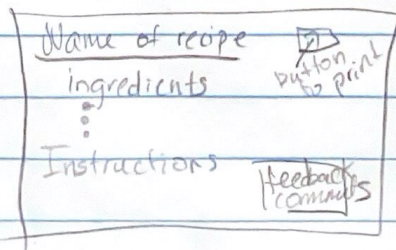 Name of recipe
button
to print
ingredients
Instructions
feedback
comments